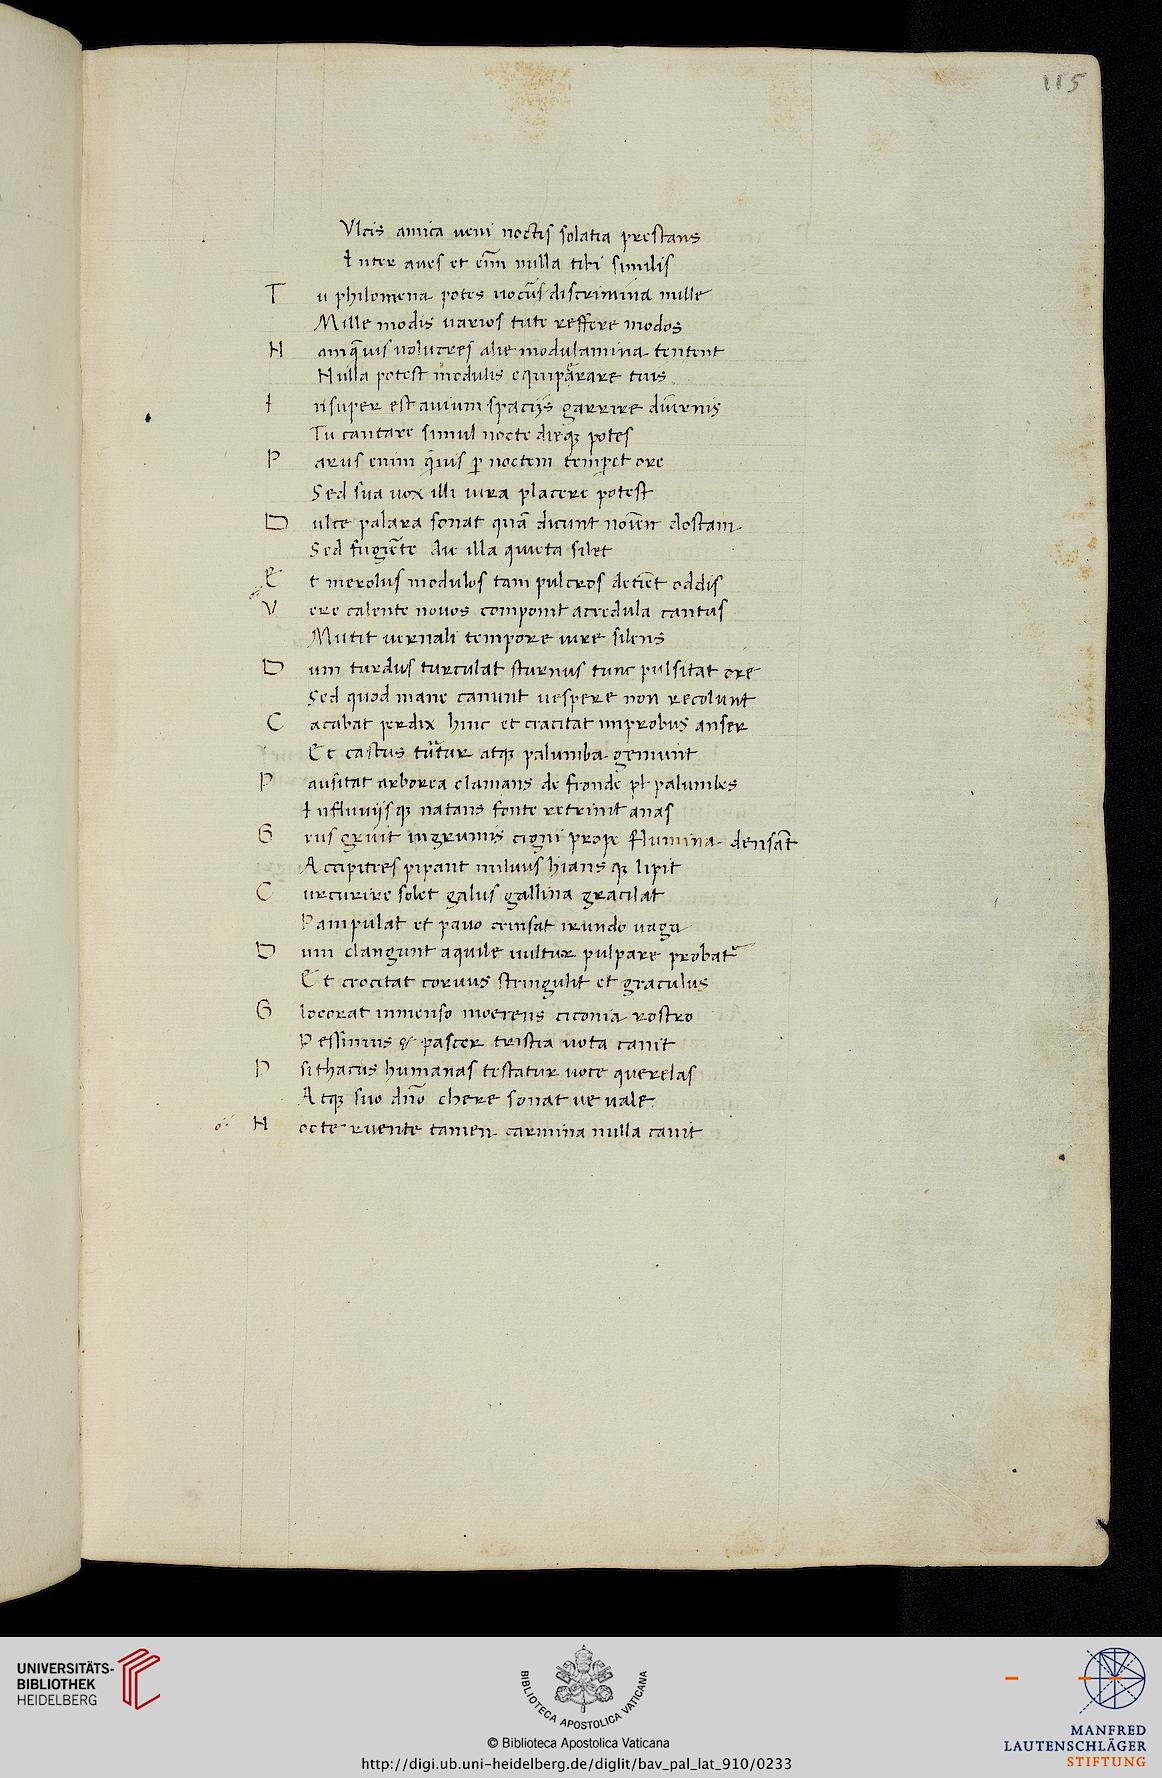 115
Vlcis amica ueni noctis solatia prestans
Inter aues et eīm nulla tibi similis
Tu philomena potes uocūs discrimina mille
Mille modis uarios tute reffere modos
Namq̄uis uolucres alie modulamina tentent
Nulla potest modulis equiparare tuis
Insuper est auium spacijs garrire diurnis
Tu cantare simul nocte dieqꝫ potes
Parus enim q̄uis ꝑ noctem temꝑet ore
Sed sua uox illi iura placere potest
Dulce palara sonat quā dicunt noīen dostam
Sed fugiēte die illa quieta silet
Et merolus modulos tam pulcros detiēt oddis
Vere calente nouos componit acredula cantus
Mutit uernali tempore iure silens
Dum turdus turculat sturnus tunc pulsitat ore
Sed quod mane canunt uespere non recolunt
Cacabat perdix hinc et cracitat improbus anser
Et castus tūtur atqꝫ palumba gemunt
Pausitat arborea clamans de fronde pl palumbes
Influuijsqꝫ natans fonte retrinit anas
Grus gruit ingrumis cigni prope flumina densāt
Accipitres pipant miluus hiansqꝫ lipit
Curcurire solet galus gallina gracilat
Pampulat et pauo trinsat irundo uaga
Dum clangunt aquile uultur pulpare probat᷑
Et crocitat coruus stringulit et graculus
Glocorat inmenso moerens ciconia rostro
Pessimus & passer tristia uota canit
Psithacus humanas testatur uoce querelas
Atqꝫ suo dn̄o chere sonat ue uale.
Nocte ruente tamen carmina nulla canit
UNIVERSITÄTS-
BIBLIOTHEK
HEIDELBERG
BIBLIOTECA APOSTOLICA VATICANA
© Biblioteca Apostolica Vaticana
http://digi.ub.uni-heidelberg.de/diglit/bav_pal_lat_910/0233
MANFRED
LAUTENSCHLÄGER
STIFTUNG